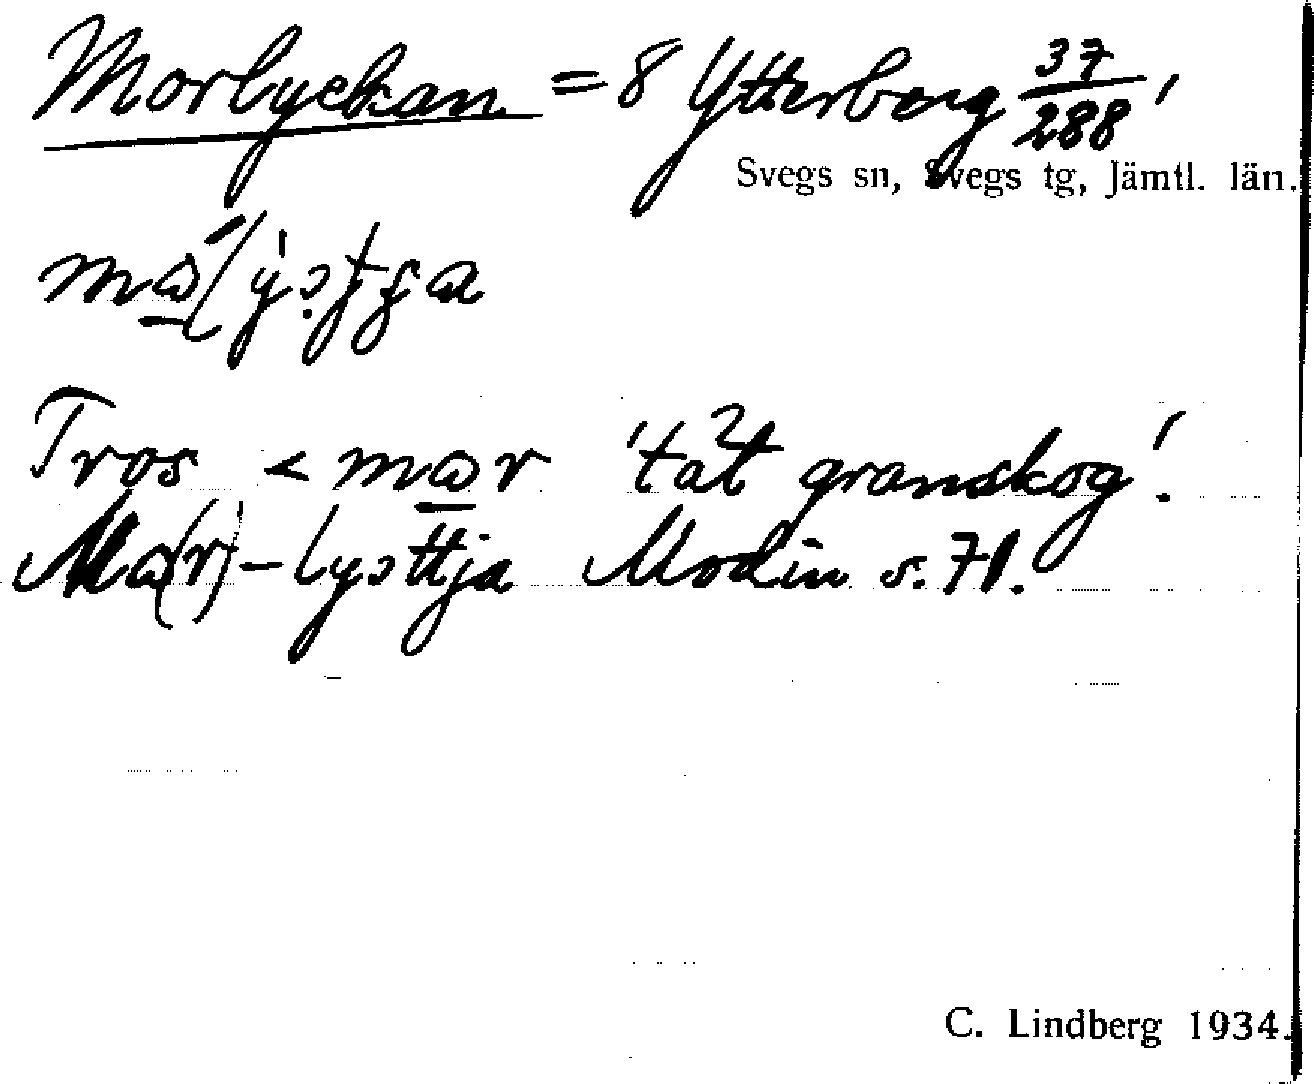 Morlyckan = 8 Ytterberg 37/288,
Svegs sn, Svegs tg, Jämtl. län.
Tros < mɷr 'tät granskog'.
Mɷ(r)-lyɔttja Modin s. 71.
C. Lindberg 1934.